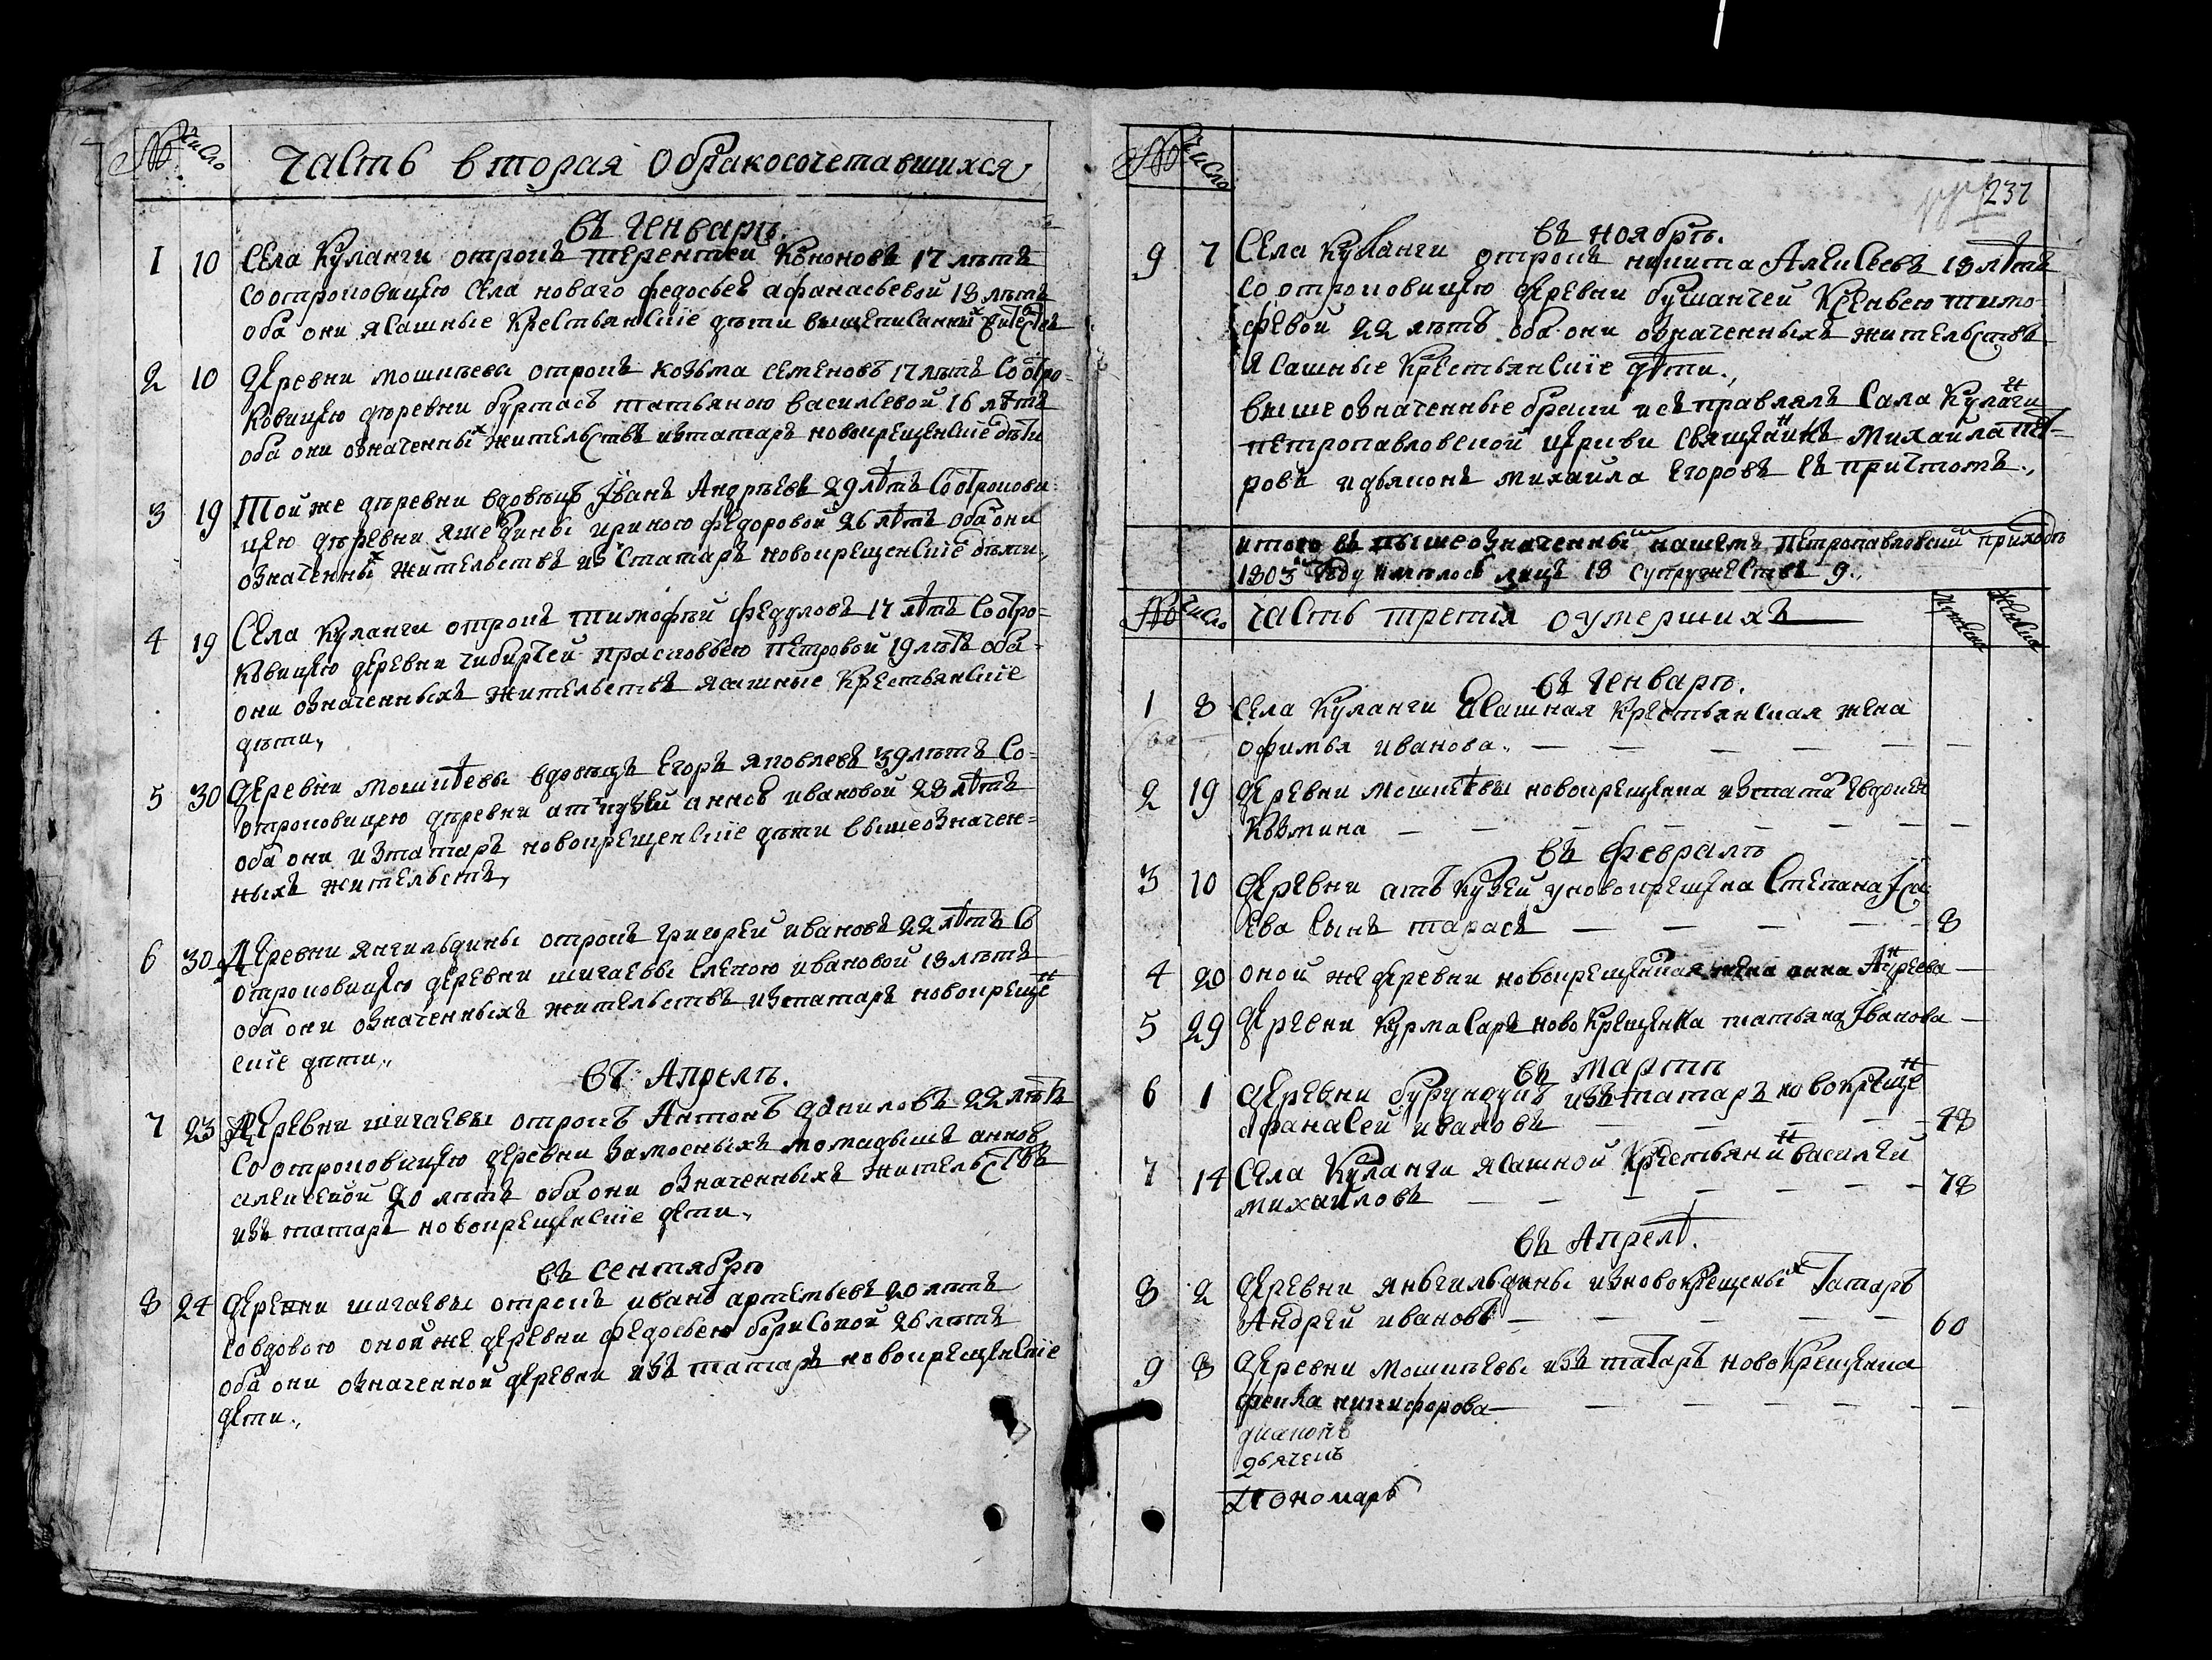 № число
Часть вторая обракосочетавшихся
въ генварѣ.
1 10 Села Куланги отрокъ терентей Кононовъ 17 лѣтъ
Со отроковицею Села новаго федосьей афанасьевой 18 лѣтъ
оба они ясашные Крестьянские дѣти вышеписанных
2 10 деревни мошитевы отрокъ козьма семеновъ 17 лѣтъ Со отро-
ковицею деревни буртасъ татьяною васильевой 16 лѣтъ
оба они означенных жительствъ изтатаръ новокрещенские дѣти
3 19 Той же деревни вдовецъ Іванъ Андрѣевъ 29 лѣтъ Со отрокови-
цею деревни ириною федоровой 26 лѣтъ оба они
означенных жительствъ изтатаръ новокрещенские дѣти
4 19 Села Куланги отрокъ тимофей Федуловъ 17 лѣтъ Со отро-
ковицею деревни чибирчей прасковьею петровой 19 лѣтъ оба
они означенныхъ жительствъ ясашные Крестьянские
дѣти,
5 30 Деревни мошитевы вдовецъ Егоръ яковлевъ 39 лѣтъ Со-
отроковицею деревни аткузей анною ивановой 28 лѣтъ
оба они изтатаръ новокрещенские дѣти вышеозначен-
ныхъ жительствъ,
6 30 Деревни янгильдины отрокъ григорей ивановъ 22 лѣтъ Со
отроковицею деревни шигаевы еленою ивановой 18 лѣтъ
оба они означенныхъ жительствъ изтатаръ новокреще н
ские дѣти,
въ Апрелѣ.
7 23 Деревни шигаевы отрокъ Антонъ даниловъ 22 лѣтъ
Со отроковицею деревни анною
алексеевой 20 лѣтъ оба они означенныхъ жительствъ
изъ татаръ новокрещенские дети,
въ сентябрѣ
8 24 деревни шигаевы отрокъ иванъ артемьевъ 20 лѣтъ
совдовою оной же деревни федосьею борисовой 26 лѣтъ
оба они означенной деревни изъ татаръ новокрещенские
дети,
№ число
237
въ ноябрѣ.
9 7 Села Куланги отрокъ никита Алексеевъ 18 лѣтъ
со отроковицею деревни бушанчей Ксеньею тимо-
феевой 22 лѣтъ оба они означенныхъ жительствъ
ясашные Крестьянские дѣти,
выше означенные браки исправлялъ Села Куланги
петропавловской церкви священникъ Михайла пет-
ровъ идьяконъ михайла Егоровъ съ причтомъ,
итого въ вышеозначенный нашемъ Петропавловским приходѣ
1803 году имелось лицъ 18 супружествъ 9.
№ число Часть третия оумершихъ
въ генварѣ.
1 8 Села Куланги ясашная Крестьянская жена
офимья иванова.
2 19 деревни мошитевы новокрещенка изтатаръ Евдокия
Козмина
въ февралѣ
3 10 деревни аткузей уновокрещена Степана
ева Сынъ тарасъ 8
4 20 оной же деревни новокрещенная жена анна Андреева
5 29 деревни Курмасаръ ново Крещенка татьяна Іванова
въ мартѣ
6 1 деревни бурундукъ изъ татаръ новокреще н
афанасей ивановъ 48
7 14 Села Куланги ясашной Крестьянин василей
михайловъ 78
въ Апрелѣ.
8 2 деревни яньгильдины изновокрещеных Татаръ
Андрей ивановъ 60
9 8 деревни мошитевы изъ татаръ новоКрещенка
фекла никифорова
диаконъ
дьячекъ
Пономарь